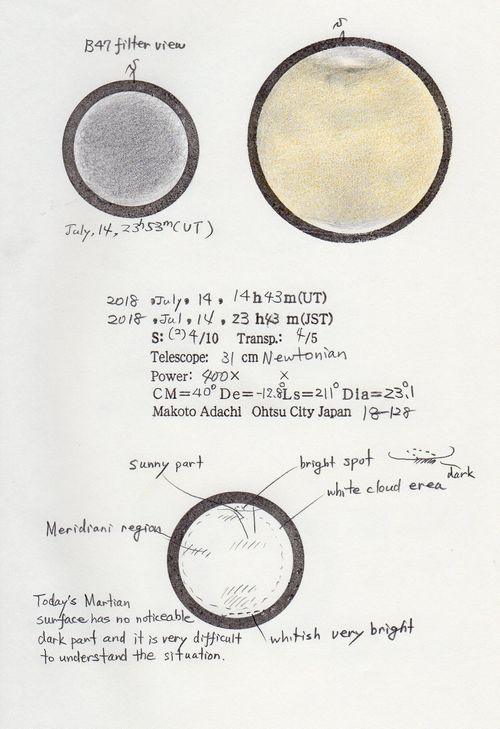 B47 filter view
S
S
July, 14, 23h53m(UT)
2018 ,July, 14 , 14h43m(UT)
2018 ,Jul , 14 , 23 h43 m(JST)
S: (2)4/10 Transp.: 4/5
Telescope: 31 cm Newtonian
Power: 400× ×
CM=40° De=-12.8° Ls=211° Dia=23.1
Makoto Adachi Ohtsu City Japan 18-128
sunny part
bright spot
dark
white cloud erea
Meridiani region
Today's Martian
surface has no noticeable
dark part and it is very difficult
to understand the situation.
whitish very bright